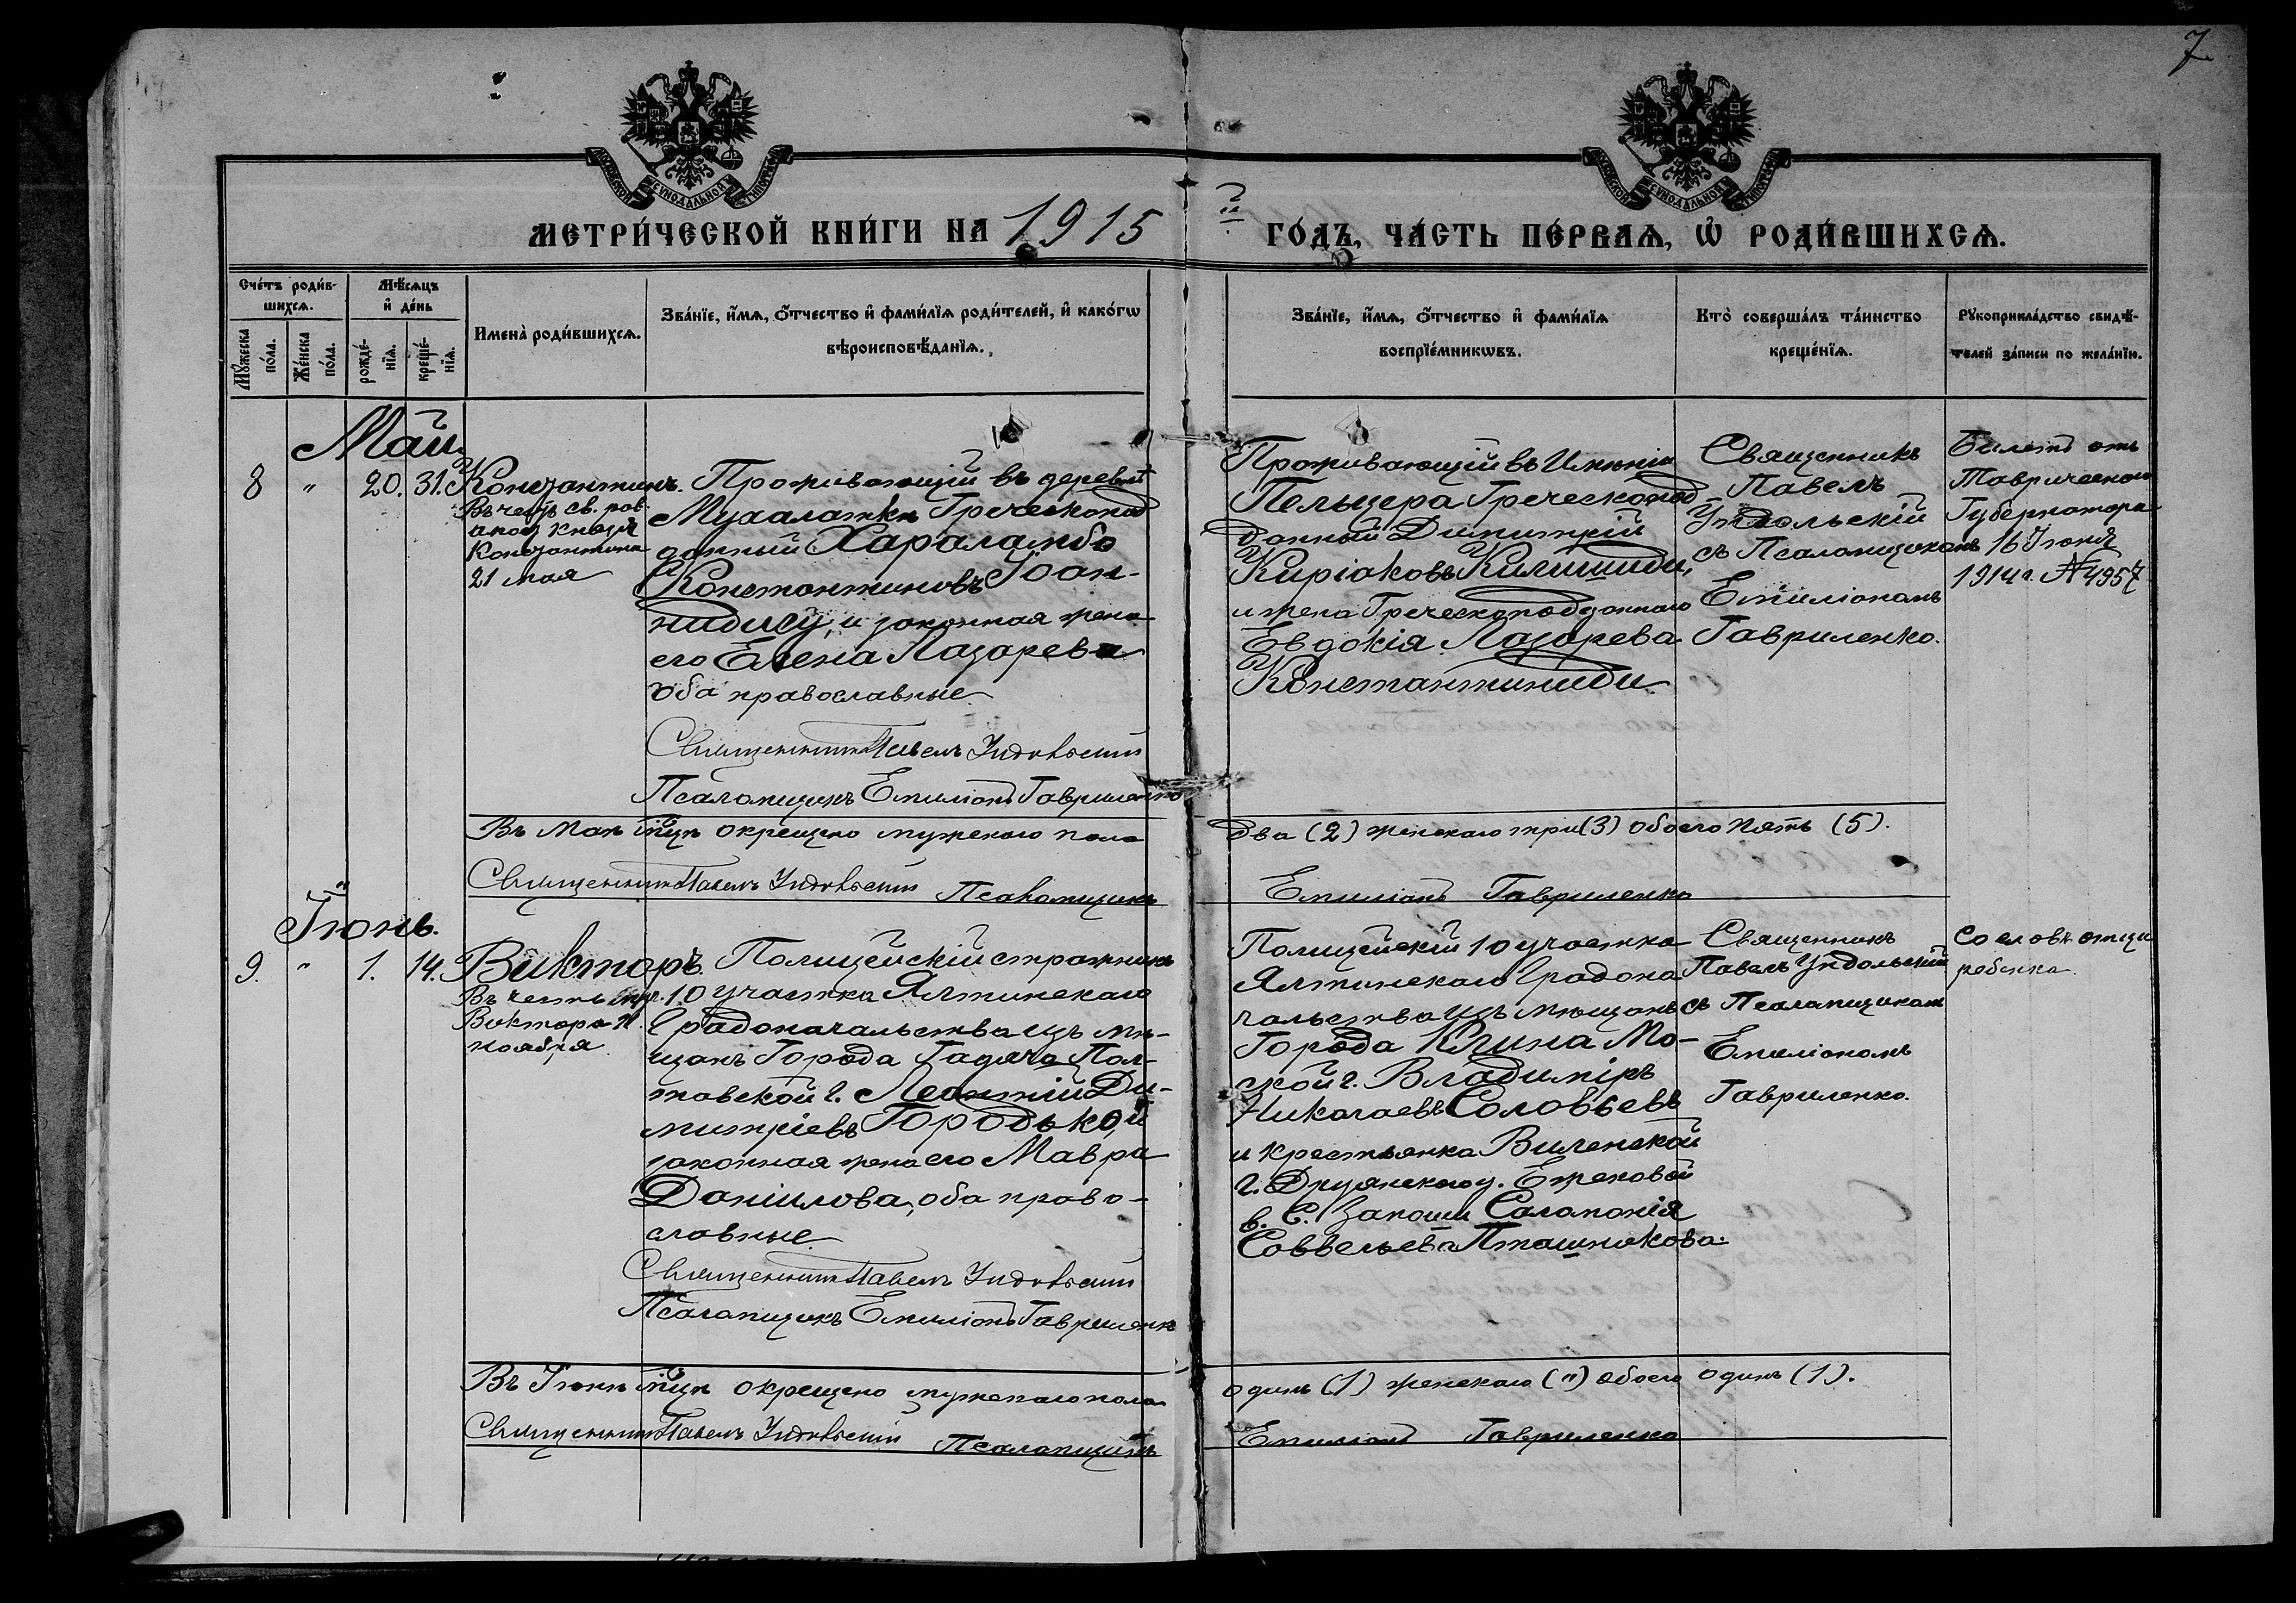 7
МЕТРИ́ЧЕСКОЙ КНИ́ГИ НА 1915 ГО́ДЪ, ЧА́СТЬ ПЕ́РВАѦ, Ѡ҆ РОДИ́ВШИХСѦ.
Сче́тъ роди́в-
шихсѧ.
Мꙋ́жеска по́ла.
Же́нска по́ла.
Мѣ́сѧцъ
и҆ де́нь
рожде́-
нїѧ.
креще́-
нїѧ.
Имена̀ роди́вшихсѧ.
Зва́нїе, и҆́мѧ, ѻ҆́тчество и҆ фами́лїѧ роди́телей, и҆ како́гѡ
вѣроисповѣ́данїѧ.
Зва́нїе, и҆́мѧ, ѻ҆́тчество и҆ фами́лїѧ
воспрїе́мникѡвъ.
Кто̀ соверша́лъ та́инство
креще́нїѧ.
Рꙋкоприкла́дство свидѣ́-
телей за́писи по жела́нїю.
Май
8 " 20. 31.
Константинъ.
Въ честь св. рав.
апос князя
Константина
21 мая
Проживающій въ деревнѣ
Мухалатки Греческопод
данный Хараламбо
Константиновъ Іоан-
нидису, и законная жена
его Елена Лазарева
оба православные
Священникъ Павелъ Ундольскій
Псаломщикъ Емиліанъ Гавриленко
Проживающій въ Имѣніи
Пельцера Греческопод
данный Димитрій
Киріаковъ Килишиди,
и жена Греческоподданнаго
Евдокія Лазарева
Константиниди
Священникъ
Павелъ
Ундольскій
съ Псаломщикомъ
Емиліаномъ
Гавриленко.
Билетъ отъ
Таврическаго
Губернатора
16 Іюня
1914 г. № 4957
Въ Маѣ мцѣ окрещено мужескаго пола два (2) женскаго три (3) обоего пять (5).
Священникъ Павелъ Ундольскій Псаломщикъ Емиліанъ Гавриленко
Іюнь.
9. " 1. 14.
Викторъ
Въ честь мч.
Виктора 11
ноября
Полицейскій стражникъ
10 участка Ялтинскаго
Градоначальства изъ мѣ-
щанъ Города Гадяча Пол-
тавской г. Леонтій Ди-
митріевъ Городько, и
законная жена его Мавра
Даніилова, оба право-
славные
Священникъ Павелъ Ундольскій
Псаломщикъ Емиліанъ Гавриленко
Полицейскій 10 участка
Ялтинскаго Градона
чальства изъ мѣщанъ
Города Клина Мо-
ской г. Владиміръ
Николаевъ Соловьевъ
и крестьянка Виленской
г. у.
в. С. Саломонія
Савельева Пташникова.
Священникъ
Павелъ Ундольскій
съ Псаломщикомъ
Емиліаномъ
Гавриленко.
Со словъ отца
ребенка
Въ Іюнѣ мцѣ окрещено мужескаго пола одинъ (1) женскаго (") обоего одинъ (1).
Священникъ Павелъ Ундольскій Псаломщикъ Емиліанъ Гавриленко